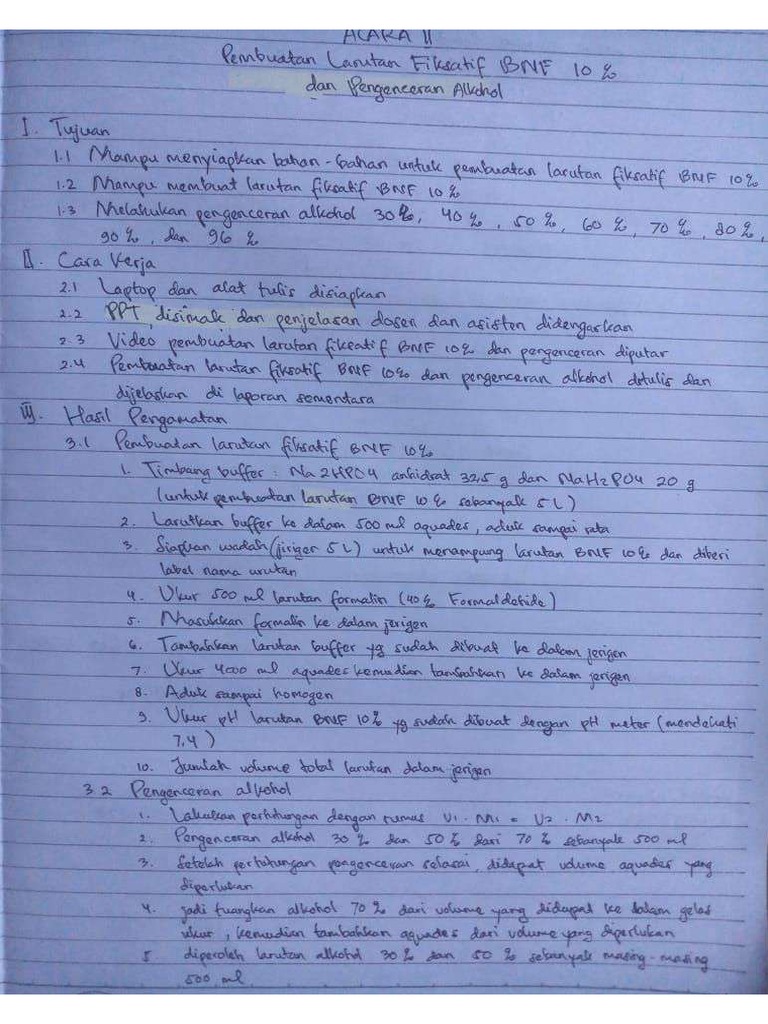 ACARA II
Pembuatan Larutan Fiksatif BNF 10%
dan Pengenceran Alkohol
I. Tujuan
1.1 Mampu menyiapkan bahan-bahan untuk pembuatan larutan fiksatif BNF 10%
1.2 Mampu membuat larutan fiksatif BNF 10%
1.3 Melakukan pengenceran alkohol 30%, 40%, 50%, 60%, 70%, 80%,
90%, dan 96%
II. Cara Kerja
2.1 Laptop dan alat tulis disiapkan
2.2 PPT disimak dan penjelasan dosen dan asisten didengarkan
2.3 Video pembuatan larutan fiksatif BNF 10% dan pengenceran diputar
2.4 Pembuatan larutan fiksatif BNF 10% dan pengenceran alkohol ditulis dan
dijelaskan di laporan sementara
III. Hasil Pengamatan
3.1 Pembuatan larutan fiksatif BNF 10%
1. Timbang buffer : Na2HPO4 anhidrat 32,5 g dan NaH2PO4 20 g
(untuk pembuatan larutan BNF 10% sebanyak 5L)
2. Larutkan buffer ke dalam 500 ml aquades, aduk sampai rata
3. Siapkan wadah (jirigen 5L) untuk menampung larutan BNF 10% dan diberi
label nama urutan
4. Ukur 500 ml larutan formalin (40% Formaldehide)
5. Masukkan formalin ke dalam jerigen
6. Tambahkan larutan buffer yg sudah dibuat ke dalam jerigen
7. Ukur 4000 ml aquades kemudian tambahkan ke dalam jerigen
8. Aduk sampai homogen
9. Ukur pH larutan BNF 10% yg sudah dibuat dengan pH meter (mendekati
7,4)
10. Jumlah volume total larutan dalam jerigen
3.2 Pengenceran alkohol
1. Lakukan perhitungan dengan rumus V1 . M1 = V2 . M2
2. Pengenceran alkohol 30% dan 50% dari 70% sebanyak 500 ml
3. Setelah perhitungan pengenceran selasai, didapat volume aquades yang
diperlukan
4. jadi tuangkan alkohol 70% dari volume yang didapat ke dalam gelas
ukur, kemudian tambahkan aquades dari volume yang diperlukan
5 diperoleh larutan alkohol 30% dan 50% sebanyak masing-masing
500 ml